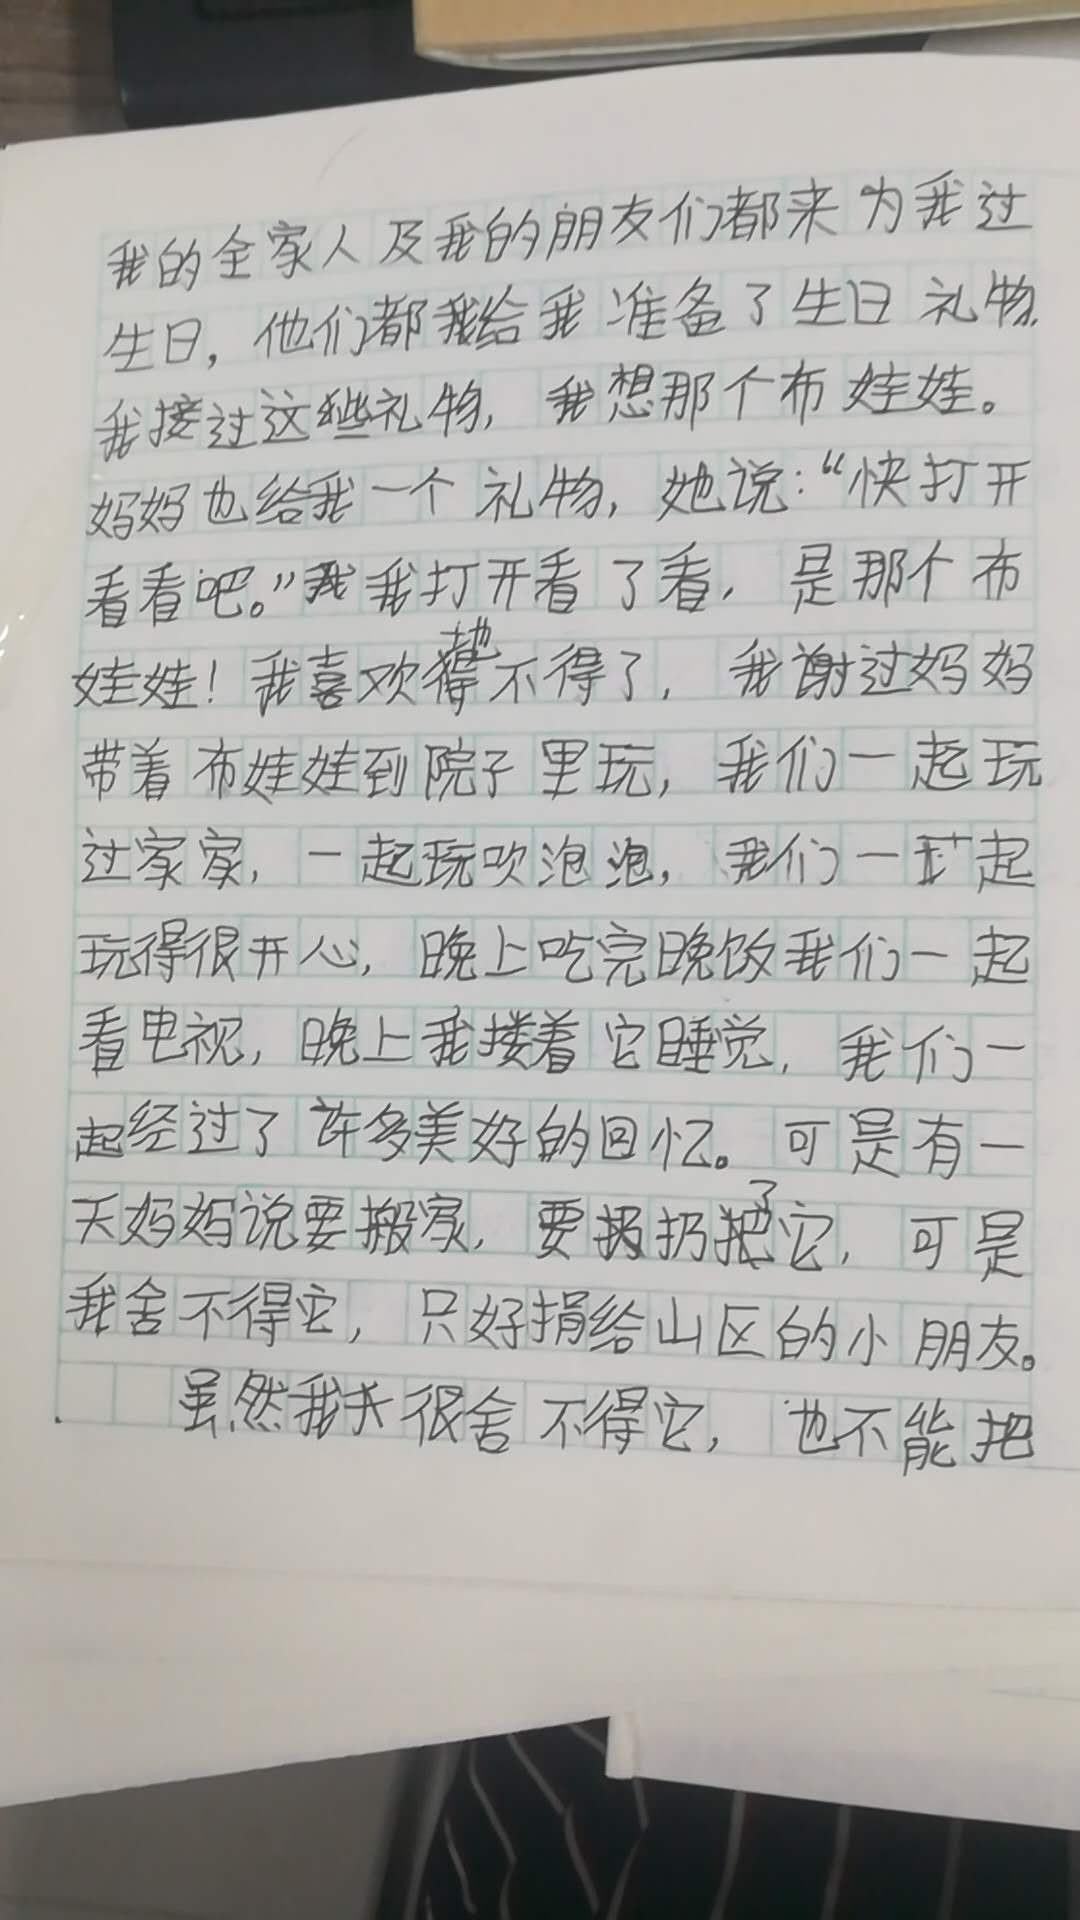 我的全家人及我的朋友们都来为我过
生日，他们都给我准备了生日礼物.
我接过这些礼物，我想那个布娃娃。
妈妈也给我一个礼物，她说：“快打开
看看吧。”我打开看了看，是那个布
娃娃！我喜欢地不得了，我谢过妈妈
带着布娃娃到院子里玩，我们一起玩
过家家，一起玩吹泡泡，我们一起
玩得很开心，晚上吃完晚饭我们一起
看电视，晚上我搂着它睡觉，我们一
起经过了许多美好的回忆。可是有一
天妈妈说要搬家，要扔了它，可是
我舍不得它，只好捐给山区的小朋友。
虽然我很舍不得它，也不能把